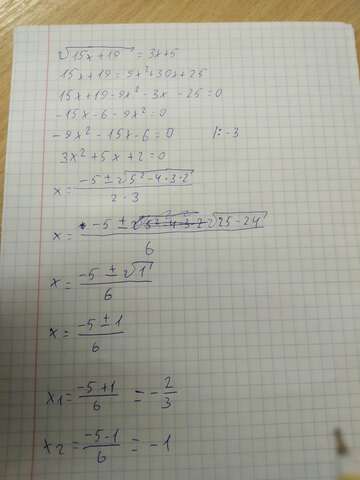 √15x+19 = 3x+5
15x+19 = 9x²+30x+25
15x+19-9x²-3x-25=0
-15x-6-9x²=0
-9x²-15x-6=0 /:-3
3x²+5x+2=0
x= -5±√5²-4·3·2 / 2·3
x= -5±√25-24 / 6
x= -5±√1 / 6
x= -5±1 / 6
x1= -5+1 / 6 = -2/3
x2= -5-1 / 6 = -1